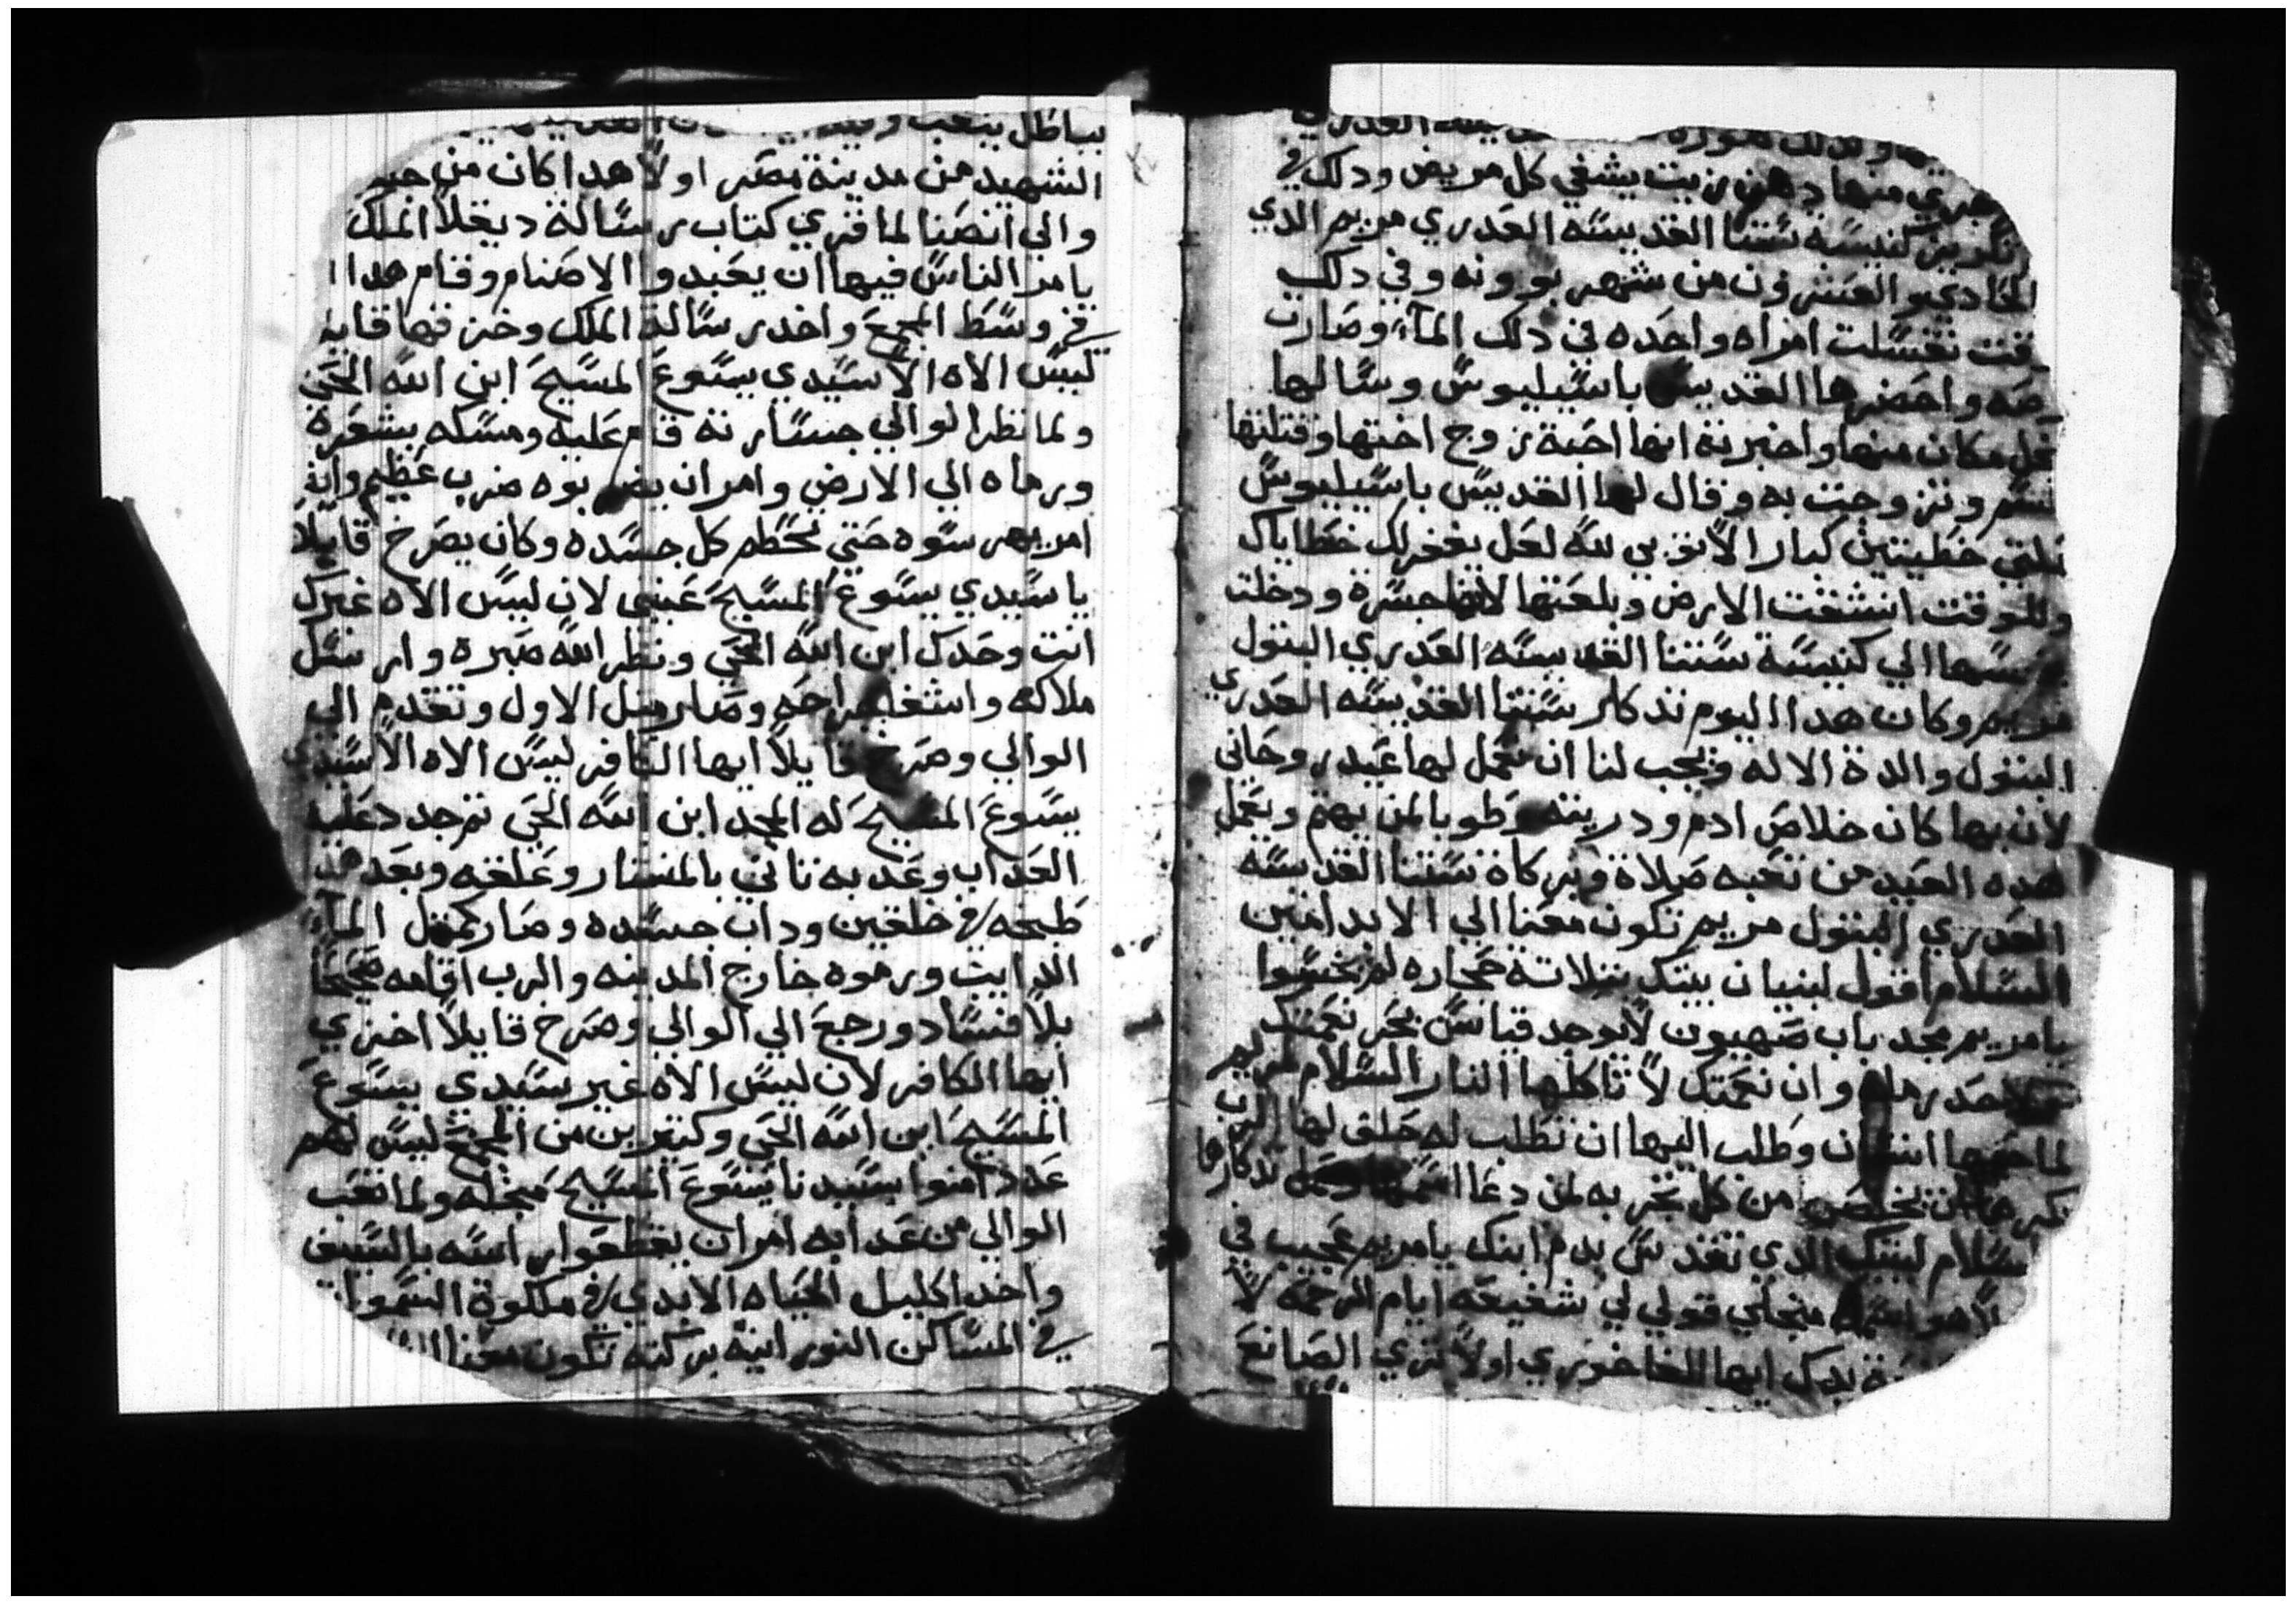 يجري منها دهن زيت يشفي كل مريض ودلك في
تكريز كنيسة ستنا القديسه العدري مريم الدي
الحادي والعشرون من شهر بوونه وفي دلك
وقت تغسلت امراه واحده في دلك المآء وصارت
واحضرها القديس باسيليوس وسالها
مكان منها واخبرته انها احبة زوج اختها وقتلتها
وتزوجت به وقال لها القديس باسيليوس
خطيتين كبار الا توبي لله لعل يغفر لك خطاياك
وللوقت انشقت الارض وبلعتها لانها جسرة ودخلت
الي كنيسة ستنا القديسه العدري البتول
مريم وكان هدا اليوم تدكار ستنا القديسه العدري
البتول والدة الاله ويجب لنا ان نعمل لها عيد روحاني
لان بها كان خلاص ادم ودريته وطوبا لمن يهتم ويعمل
هده العيد من تعبه صلاة وبركاة ستنا القديسه
العدري البتول مريم تكون معنا الي الابد امين
السلام اقول لبنيان بيتك بتلاتة حجاره لم يخسوا
يا مريم مجد باب صهيون لا توجد قياس بحر نعمتك
رمله وان نعمتك لا تاكلها النار السلام لمريم
لما انسان وطلب اليها ان تطلب له خلق لها الرب
من كل تجربه لمن دعا تدكارها
سلام لبيتك الدي تقدس بدم ابنك يا مريم عجيب في
منجلي قولي لي شفيعه ايام الرحمه لا
يدك ايها الفاخوري اولا تري الصانع
الشهيد من مدينة بصر اولا هدا كان من جند
والي انصنا لما قري كتاب رسالة ديقلا الملك
يامر الناس فيها ان يعبدوا الاصنام وقام هدا
في وسط المجمع واخد رسالة الملك وخزقها قايلا
ليس الاه الا سيدي يسوع المسيح ابن الله الحي
ولما نظر الوالي جسارته قام عليه ومسكه بشعرة
ورماه الي الارض وامر ان يضربوه ضرب عظيم وانه
امر يهرسوه حتي تحطم كل جسده وكان يصرخ قايلا
يا سيدي يسوع المسيح عيني لان ليس الاه غيرك
انت وحدك ابن الله الحي ونظر الله صبره وارسل
ملاكه واشفا جراحه وصار متل الاول وتقدم الي
الوالي وصرخ قايلا ايها الكافر ليس الاه الا سيدي
يسوع المسيح له المجد ابن الله الحي تم جدد عليه
العداب وعدبه تاني بالمنشار وعلقه وبعد هدا
طبخه في خلقين وداب جسده وصار كمتل المآء
الدايب ورموه خارج المدينه والرب اقامه صحيحا
بلا فساد ورجع الي الوالي وصرخ قايلا اخزي
ايها الكافر لان ليس الاه غير سيدي يسوع
المسيح ابن الله الحي وكتيرين من المجمع ليس لهم
عدد امنوا بسيدنا يسوع المسيح ولما تعب
الوالي من عدابه امر ان يقطعوا راسه بالسيف
واخد اكليل الحياه الابدي في ملكوة السموات
في المساكن النورانيه بركته تكون معنا